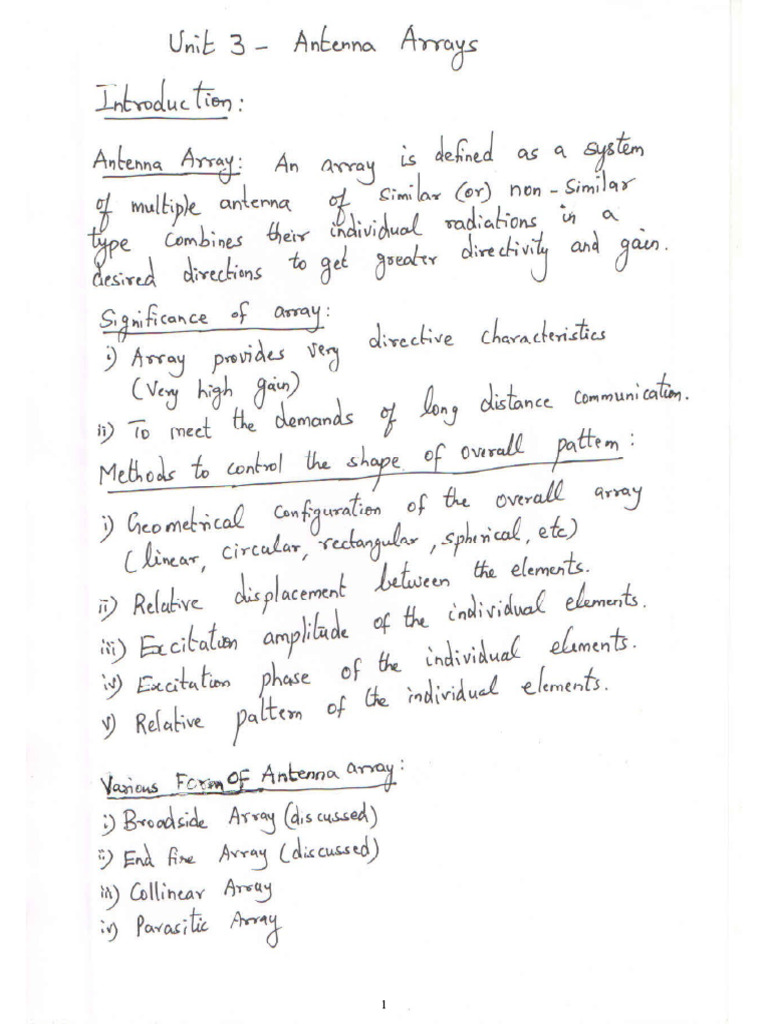 Unit 3 - Antenna Arrays
Introduction:
Antenna Array: An array is defined as a system
of multiple antenna of similar (or) non-similar
type combines their individual radiations in a
desired directions to get greater directivity and gain.
Significance of array:
i) Array provides very directive characteristics
(Very high gain)
ii) To meet the demands of long distance communication.
Methods to control the shape of overall pattern:
i) Geometrical configuration of the overall array
(linear, circular, rectangular, spherical, etc)
ii) Relative displacement between the elements.
iii) Excitation amplitude of the individual elements.
iv) Excitation phase of the individual elements.
v) Relative pattern of the individual elements.
Various Form OF Antenna array:
i) Broadside Array (discussed)
ii) End fire Array (discussed)
iii) Collinear Array
iv) Parasitic Array
1